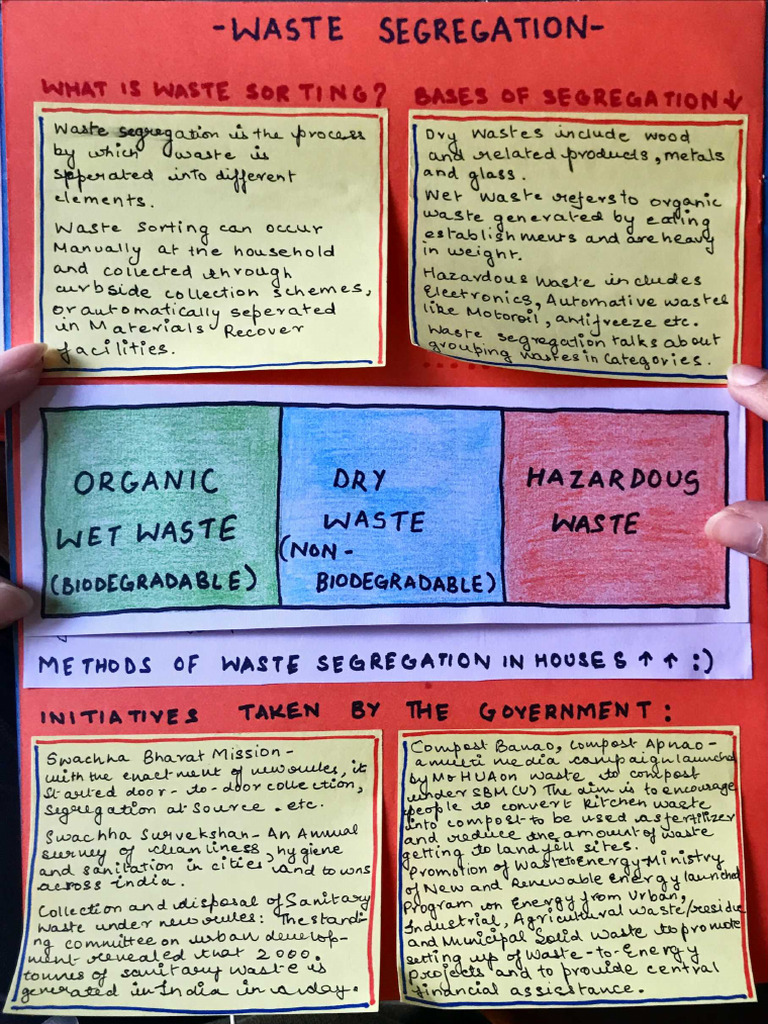 -WASTE SEGREGATION-
WHAT IS WASTE SORTING?
Waste segregation is the process
by which waste is
sperated into different
elements.
Waste sorting can occur
Manually at the household
and collected through
curbside collection schemes,
or automatically seperated
in Materials Recover
facilities.
BASES OF SEGREGATION↓
Dry wastes include wood
and related products, metals
and glass.
Wet waste refers to organic
waste generated by eating
establishments and are heavy
in weight.
Hazardous waste includes
Electronics, Automative wastes
like Motoroil, antifreeze etc.
Waste segregation talks about
grouping wastes in Categories.
ORGANIC
WET WASTE
(BIODEGRADABLE)
DRY
WASTE
(NON-
BIODEGRADABLE)
HAZARDOUS
WASTE
METHODS OF WASTE SEGREGATION IN HOUSES ↑ ↑ :)
INITIATIVES TAKEN BY THE GOVERNMENT:
Swachha Bharat Mission-
with the enactment of new rules, it
started door-to-door collection,
segregation at source. etc.
Swachha Survekshan- An Annual
survey of cleanliness, hygiene
and sanitation in cities and towns
across india.
Collection and disposal of Sanitary
Waste under new rules: The standi-
ng committee on urban develop-
ment revealed that 2000.
tonnes of sanitary waste is
generated in India in a day.
Compost Banao, Compost Apnao-
a multi media campaign launched
by MoHUA on waste to compost
under SBM(U) The aim is to encourage
people to convert kitchen waste
into compost to be used as fertilizer
and reduce the amount of waste
getting to landfill sites.
Promotion of Waste to Energy-Ministry
of New and Renewable Energy launched
Program on Energy from Urban,
Industrial, Agricultural Waste/residue
and Municipal Solid Waste to promote
setting up of Waste-to-Energy
projects and to provide central
financial assistance.